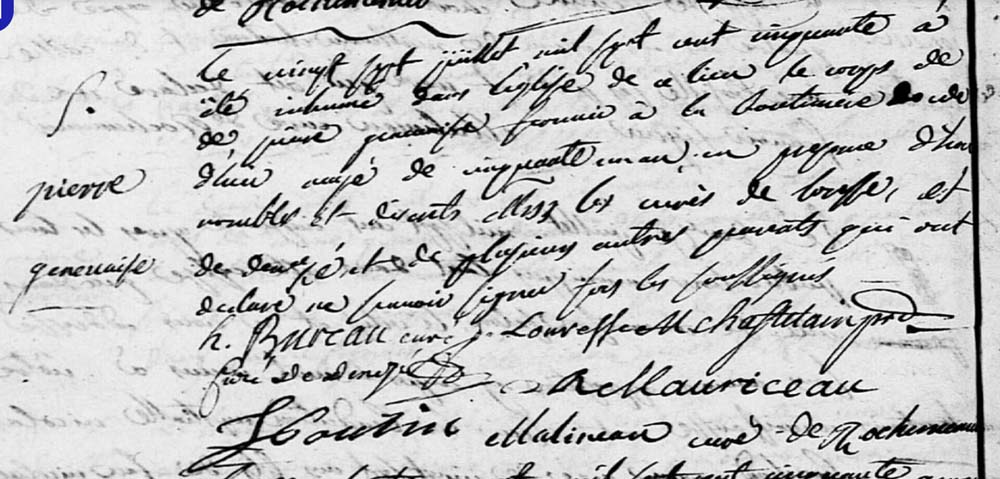 de Rochemenier
S.
pierre
genevaise
Le vingt sept juillet mil sept cent cinquante à
été inhumé dans l'église de ce lieu le corps de
de pierre genevaise fermier à la
d'hier agé de cinquante un an en presence d'hon
norables et discrets Mess les curés de Louresse, et
de denezé et de plusieurs autres parents qui ont
declaré ne scavoir signer fors les soussignés
h. Bureau curé Louresse M chastelain prd
curé de denezé R Mauriceau
Boutin Malineau curé de Rochemenier
mil sept cent cinquante